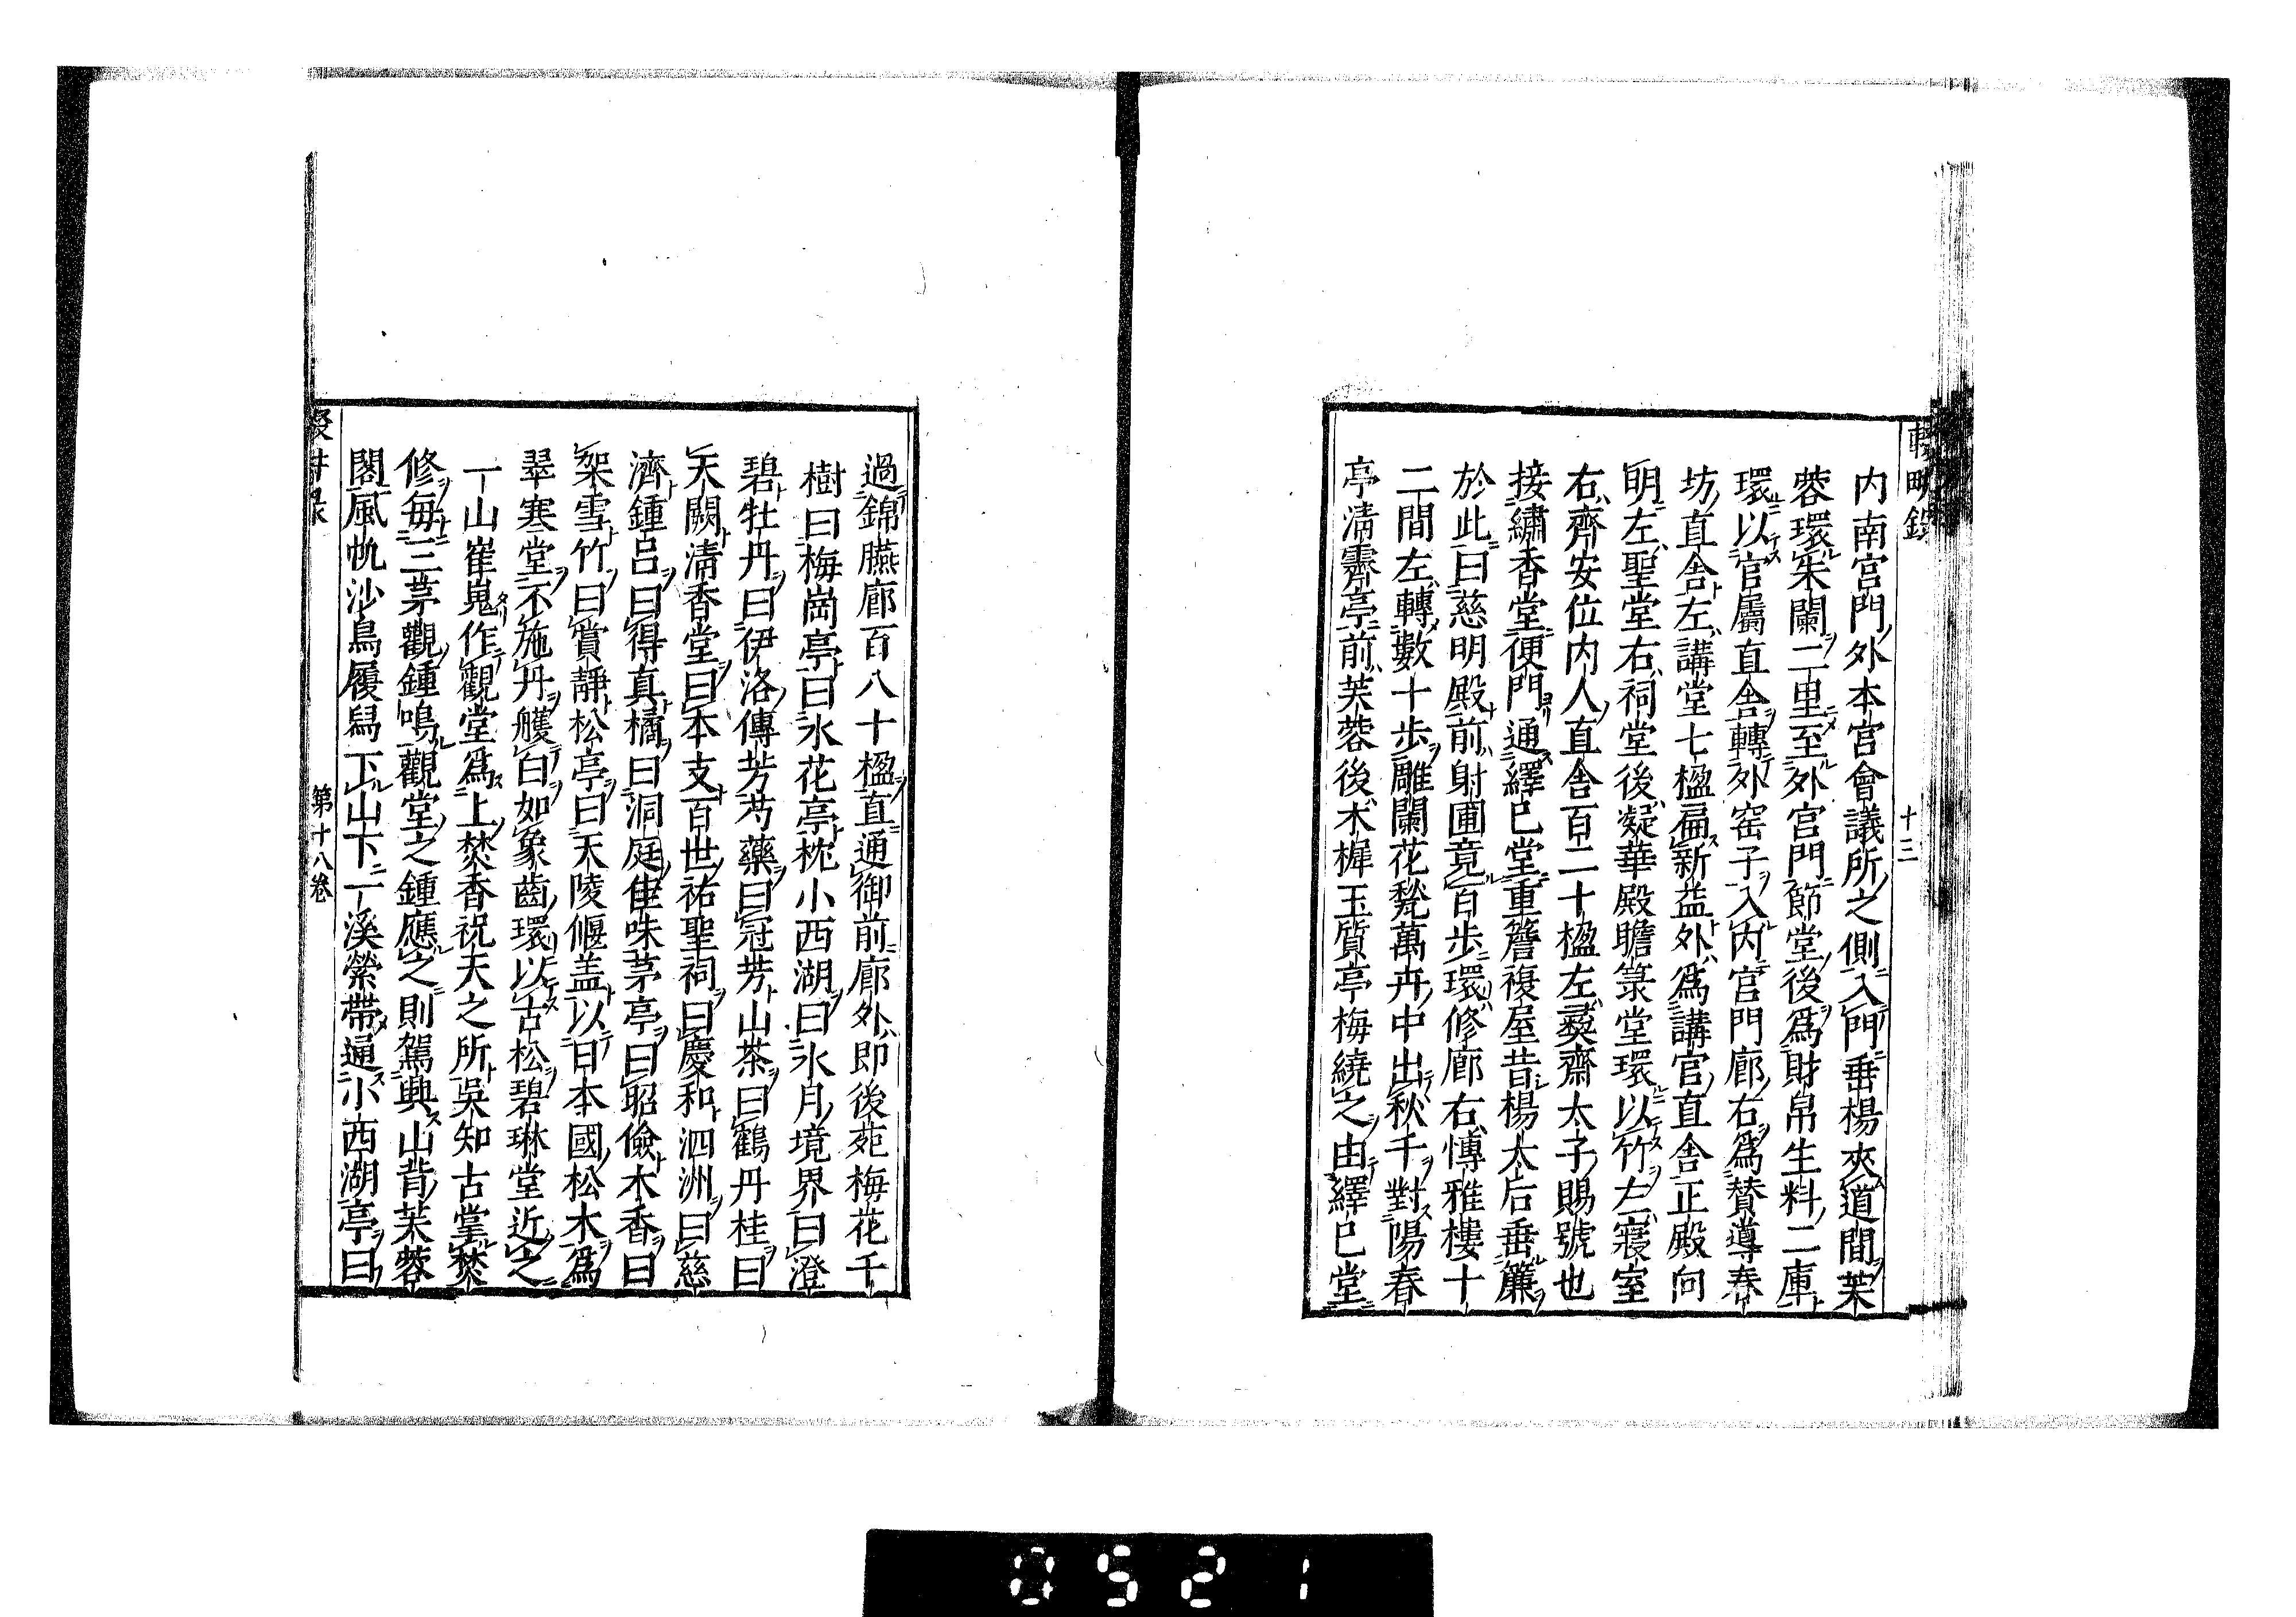 輟畊錄
十三
内南宮門外本宮會議所之側入門垂楊夾道間芙
蓉環朱闌二里至外宮門節堂後爲財帛生料二庫
環以官屬直舍轉外窑子入内宮門廊右爲賛導春
坊直舍左講堂七楹扁新益外爲講官直舍正殿向
明左聖堂右祠堂後凝華殿瞻菉堂環以竹左寢室
右齊安位内人直舍百二十楹左彞齋太子賜號也
接繡香堂便門通繹已堂重簷複屋昔楊太后垂簾
於此曰慈明殿前射圃竟百步環修廊右慱雅樓十
二間左轉數十步雕闌花甃萬卉中出秋千對陽春
亭清霽亭前芙蓉後木樨玉質亭梅繞之由繹已堂
過錦臙廊百八十楹直通御前廊外即後苑梅花千
樹曰梅崗亭曰氷花亭枕小西湖曰水月境界曰澄
碧牡丹曰伊洛傳芳芍藥曰冠芳山茶曰鶴丹桂曰
天闕清香堂曰本支百世祐聖祠曰慶和泗洲曰慈
濟鍾呂曰得真橘曰洞庭佳味茅亭曰昭儉木香曰
架雪竹曰賞靜松亭曰天陵偃盖以日本國松木爲
翠寒堂不施丹雘白如象齒環以古松碧琳堂近之
一山崔嵬作觀堂爲上焚香祝天之所吳知古掌焚
修每三茅觀鍾鳴觀堂之鍾應之則駕興山背芙蓉
閣風帆沙鳥履舄下山下一溪縈帶通小西湖亭曰
第十八卷